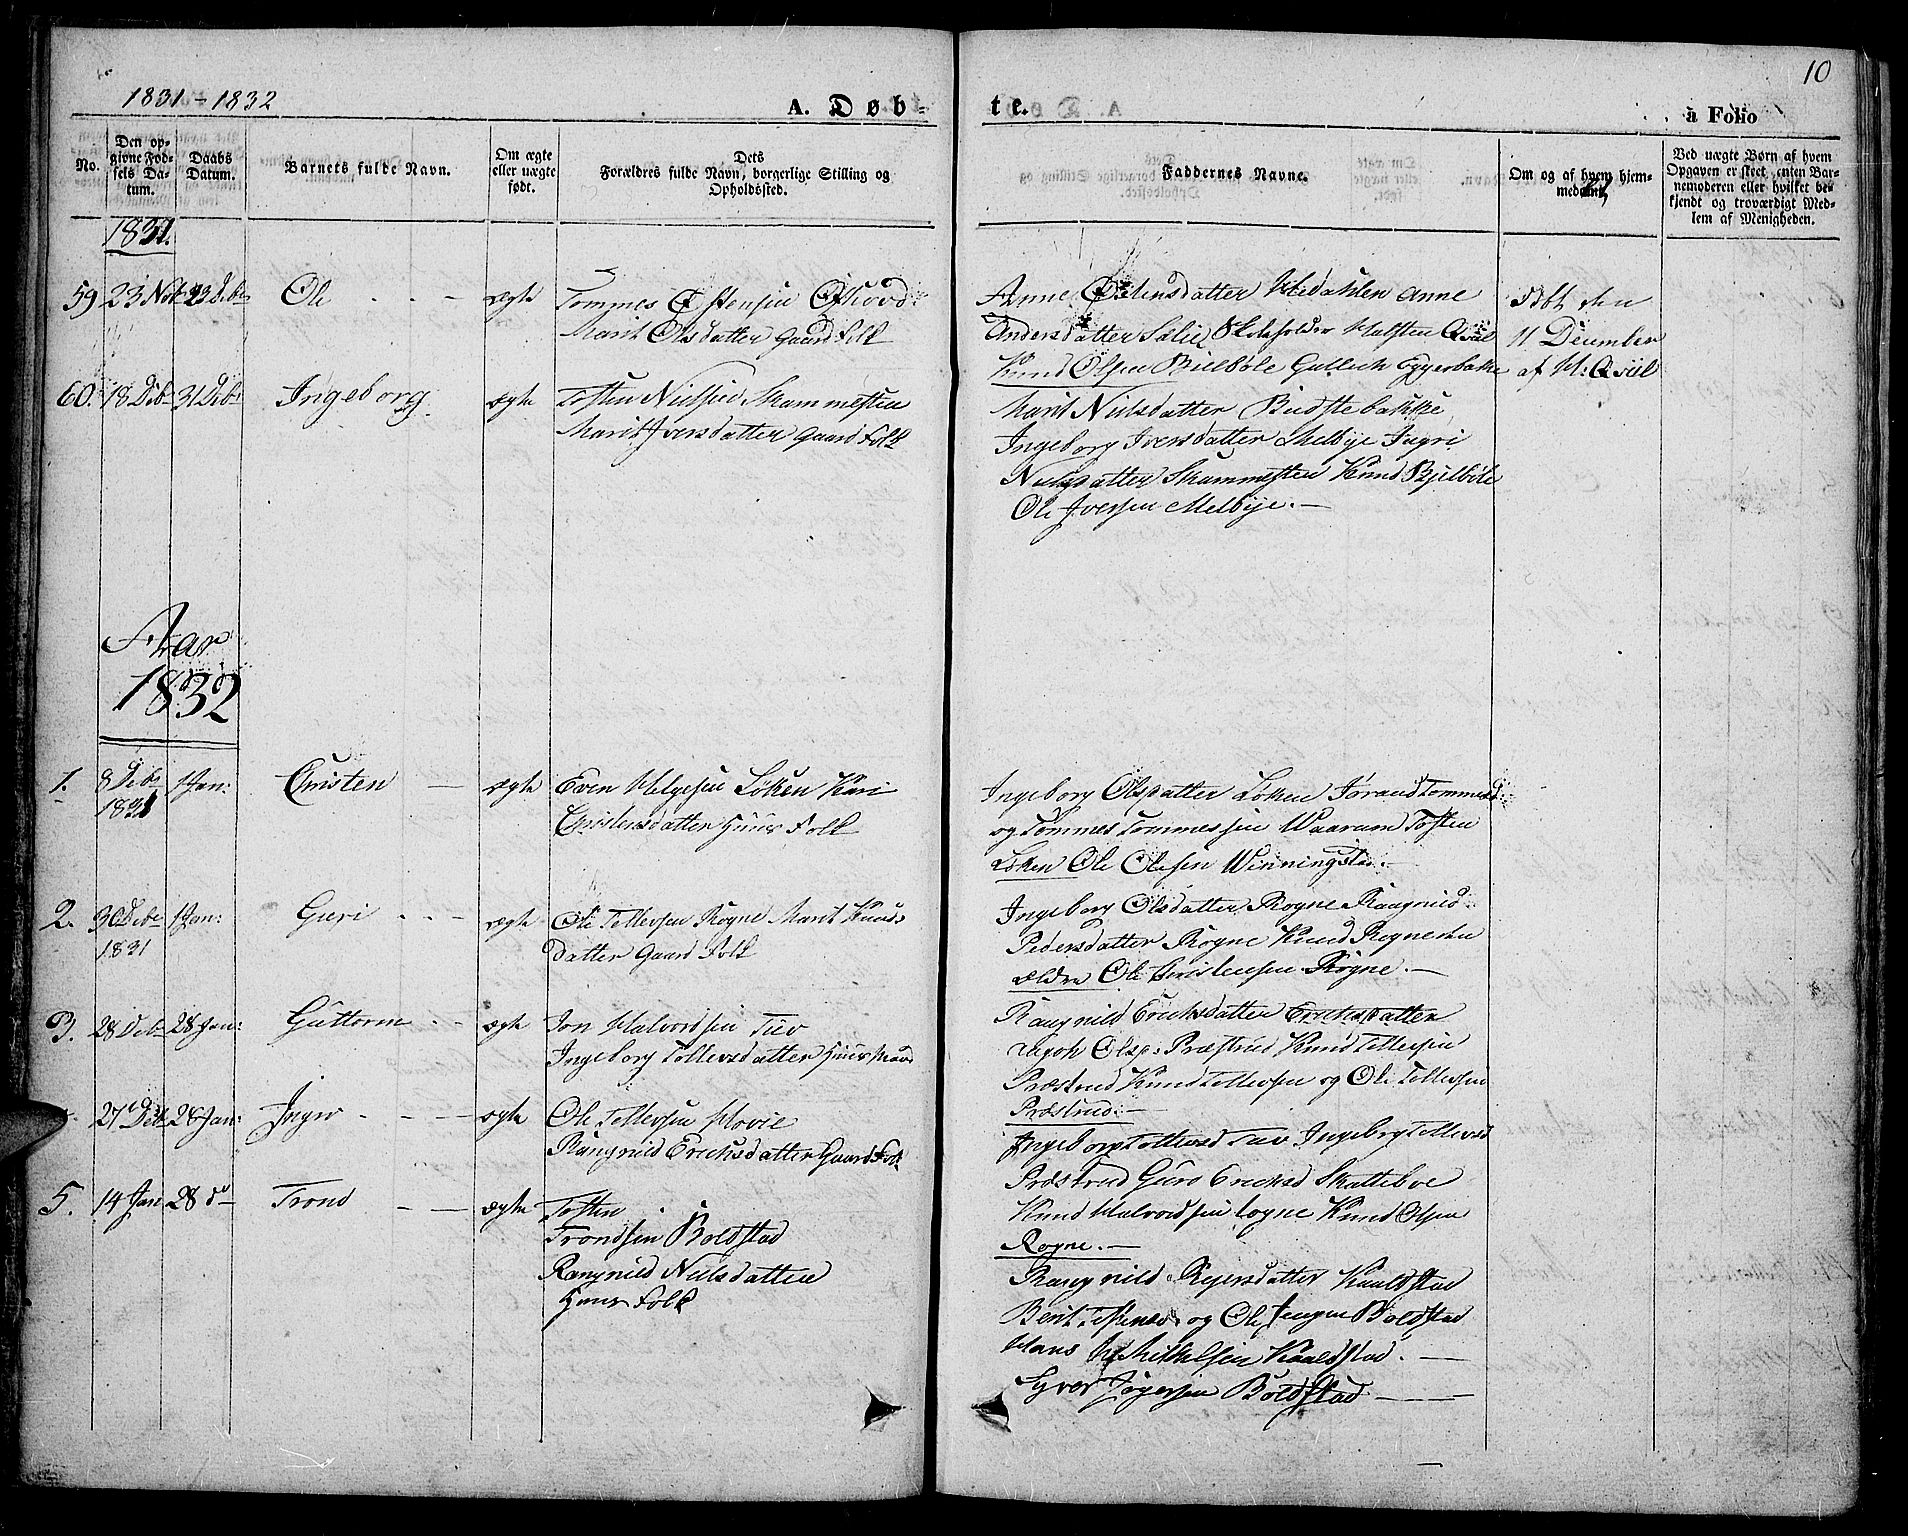 1831-1832
A. Døb-
te.
à Folio
10
No.
Den op-
givne Fød-
sels Da-
tum.
Daabs
Datum.
Barnets fulde Navn.
Om ægte
eller uægte
født.
Dets
Forældres fulde Navn, borgerlige Stilling og
Opholdssted.
Faddernes Navne.
Om og af hvem hjem-
medøbt.
Ved uægte Børn af hvem
Opgaven er skeet, enten Bar-
nemoderen eller hvilket be-
kjendt og troværdigt Med-
lem af Menigheden.
1831.
59 23 Nov 23 Deb Ole ægte Tommes
Marit Olsdatter Gaard Folk
Anne Hedahlen Anne
Andersdatter Skoleholder Halsten Qviil
Knud Olsen Bielbøle Gullich Eggerbakke
Døbt den
11 December
af H: Qviil
60. 18 Deb 31 Deb Ingeborg ægte Tosten Nielsen Skammesten
Marit Iversdatter Gaard Folk
Marit Nielsdatter Budstebakke
Ingeborg Iversdatter Melbye Ingri
Nielsdatter Skammesten Knud Bjelbøle
Ole Iversen Melbye.
Aar
1832
1. 8 Deb 1 Jan: Christen ægte Even Helgesen Løken Kari
1831 Christensdatter Huus Folk
Ingeborg Olsdatter Løken Jørand Tommesd
og Tommes Tommessen Waarum Tosten
Løken Ole Olesen Winningstad
2. 30 Deb 1 Jan: Guri ægte Ole Tollevsen Rogne Marit Knuds
1831 datter Gaard Folk
Ingeborg Olsdatter Rogne Raagnild
Pedersdatter Rogne Knud Rogne den
ældre Ole Christensen Rogne.
3. 28 Deb 28 Jan: Guttorm ægte Jon Halvordsen Tiev
Ingeborg Tollevsdatter Huus Mand
Rangnild Ericksdatter Ericksdatter
Olsd: Præstrud Knud Tollevsen
Præstrud Knud Tollevsen og Ole Tollevsen
Præstrud.
27 Deb 28 Jan: ægte Ole Tollevsen Hovie
Rangnild Ericksdatter Gaard Folk
Ingeborg Tollevsd Tiev Ingeborg Tollevsd
Præstrud Guro Ericksd Skatteboe
Knud Halvordsen Rogne Knud Olsen
Rogne.
5. 14 Jan 28 do Trond ægte Tosten
Trondsen Boldstad
Rangnild Nielsdatter
Huus Folk
Rangnild Kaaldstad
Berit og Ole Boldstad
Hans Mikkelsen Kaaldstad.
Syver Boldstad